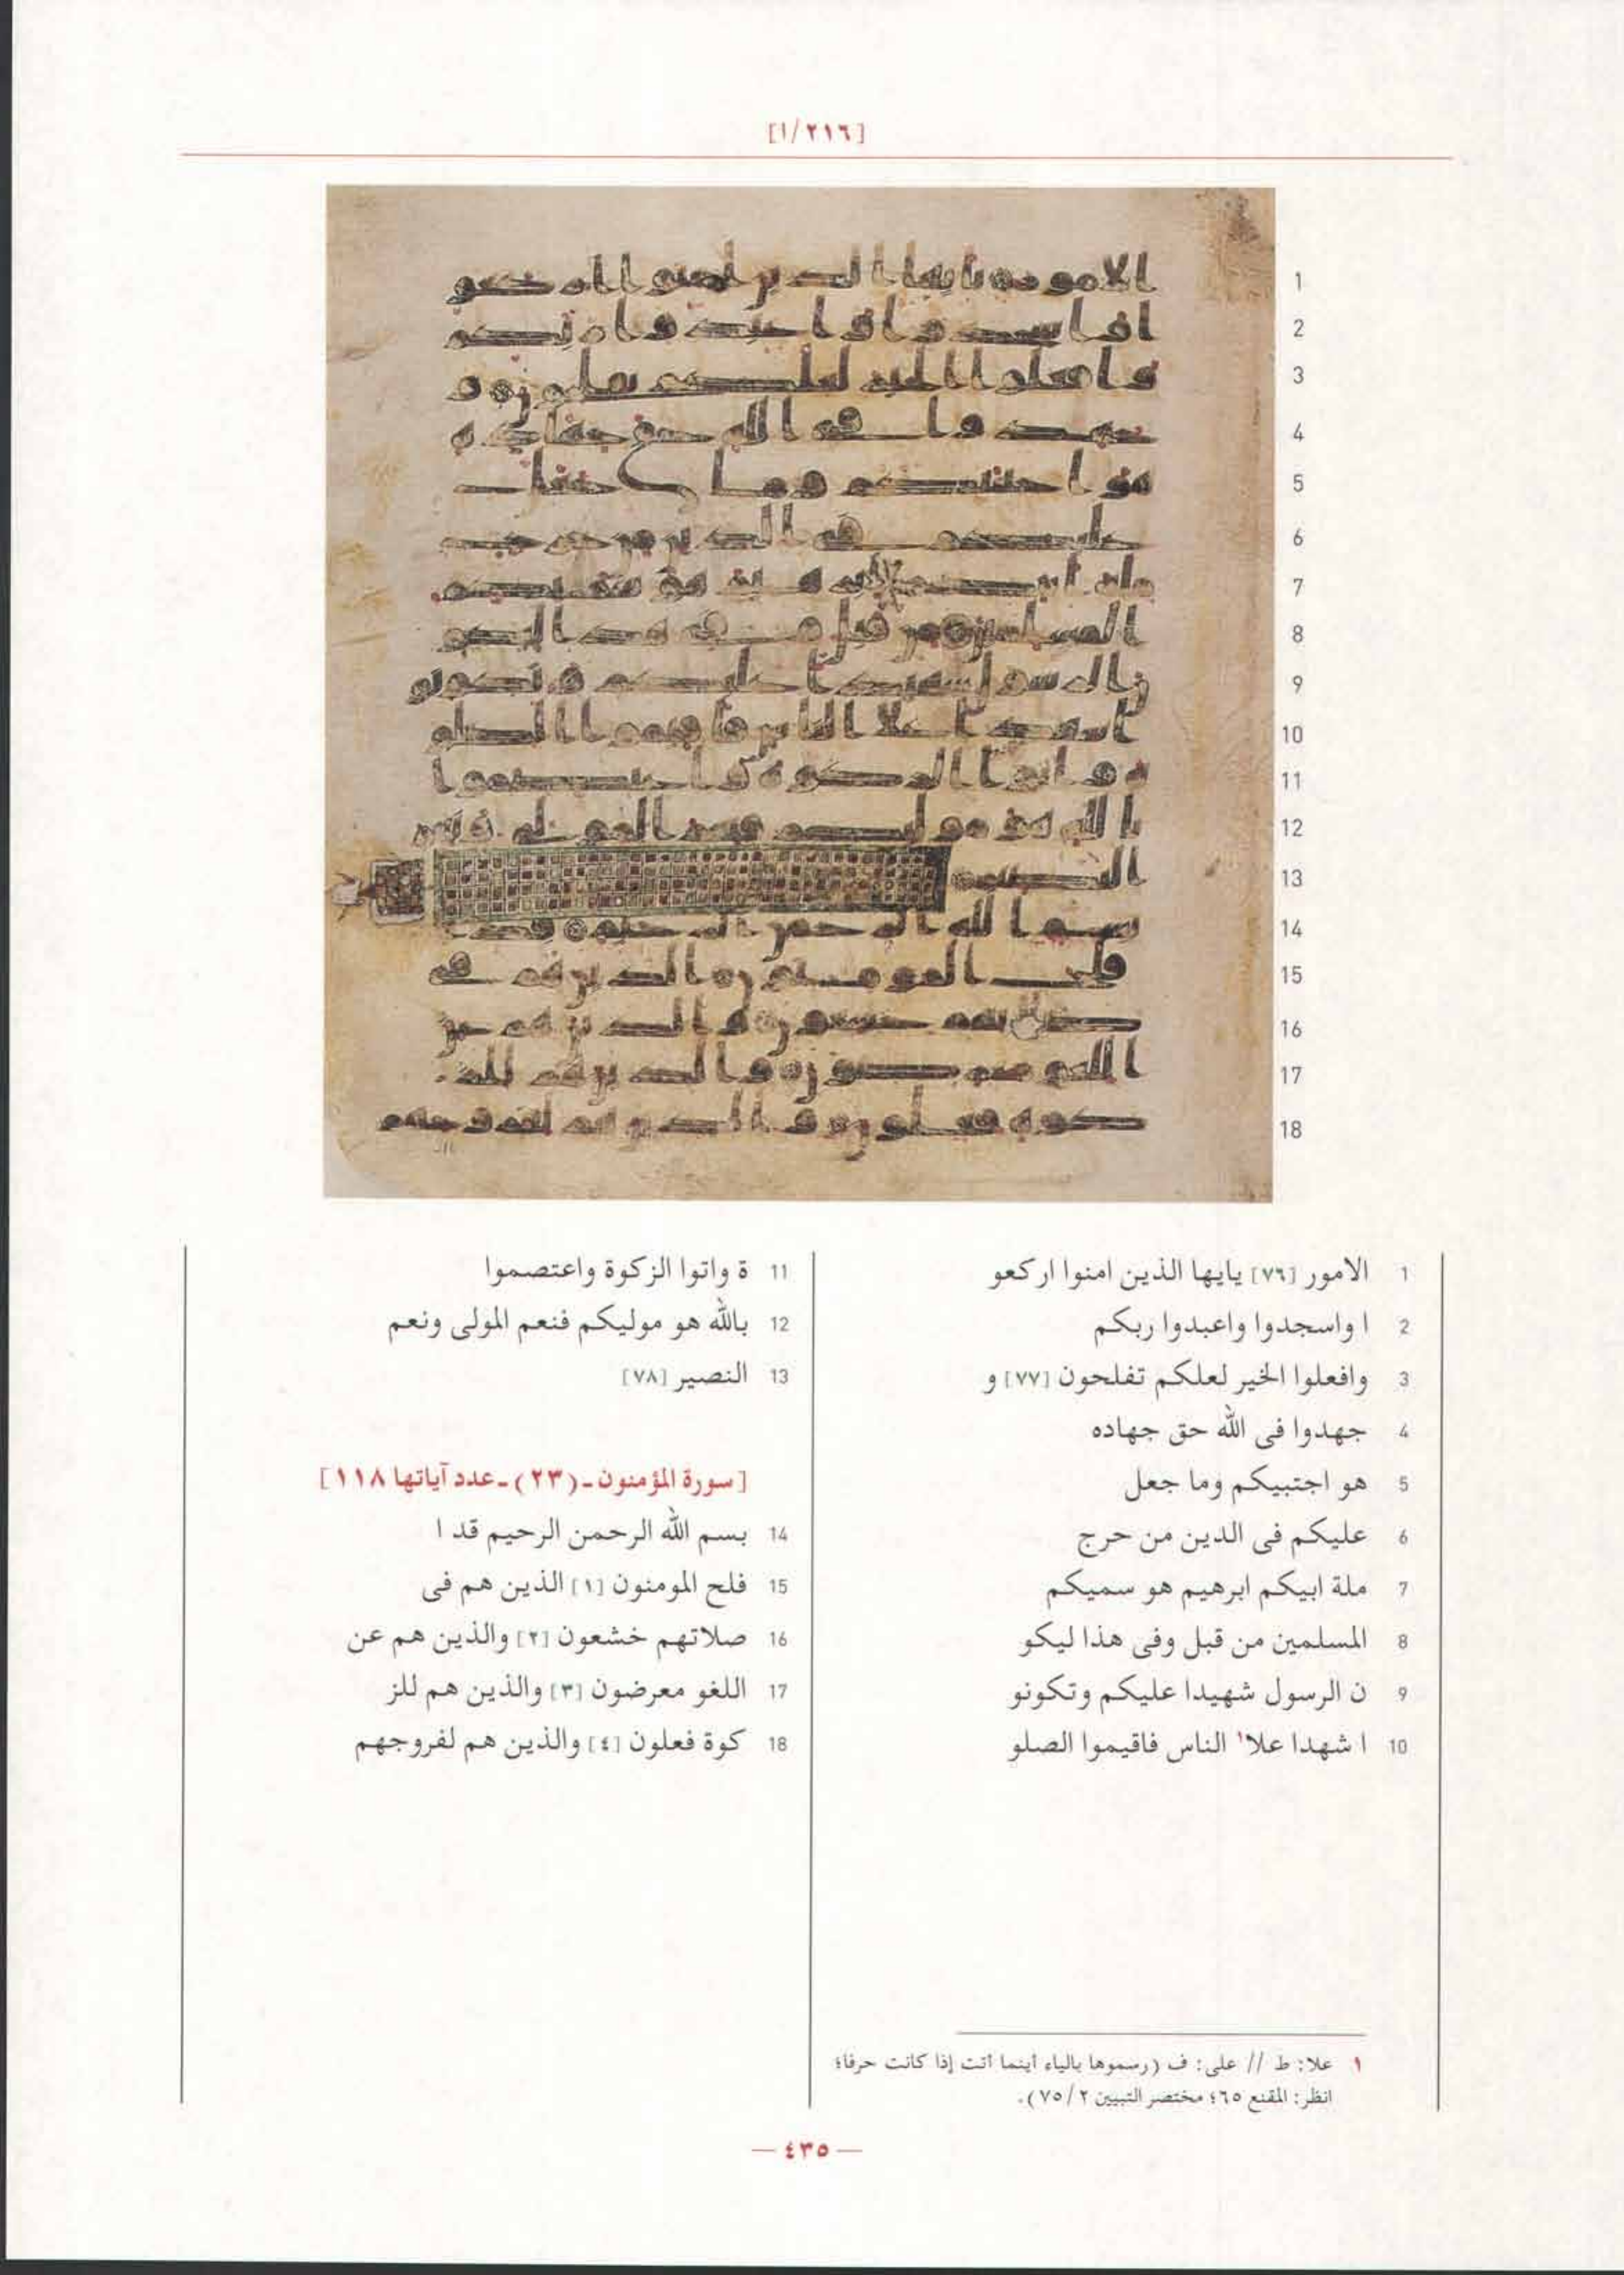 [٢١٦/١]
1
2
3
4
5
6
7
8
9
10
11
12
13
14
15
16
17
18
1 الامور [٧٦] يايها الذين امنوا اركعو
2 ا واسجدوا واعبدوا ربكم
3 وافعلوا الخير لعلكم تفلحون [٧٧] و
4 جهدوا فى الله حق جهاده
5 هو اجتبيكم وما جعل
6 عليكم فى الدين من حرج
7 ملة ابيكم ابرهيم هو سميكم
8 المسلمين من قبل وفى هذا ليكو
9 ن الرسول شهيدا عليكم وتكونو
10 ا شهدا علا١ الناس فاقيموا الصلو
11 ة واتوا الزكوة واعتصموا
12 بالله هو موليكم فنعم المولى ونعم
13 النصير [٧٨]
[سورة المؤمنون ـ (٢٣) ـ عدد آياتها ١١٨]
14 بسم الله الرحمن الرحيم قد ا
15 فلح المومنون [١] الذين هم فى
16 صلاتهم خشعون [٢] والذين هم عن
17 اللغو معرضون [٣] والذين هم للز
18 كوة فعلون [٤] والذين هم لفروجهم
١ علا: ط // على: ف (رسموها بالياء أينما أتت إذا كانت حرفا؛
انظر: المقنع ٦٥؛ مختصر التبيين ٢/ ٧٥).
— ٤٣٥ —